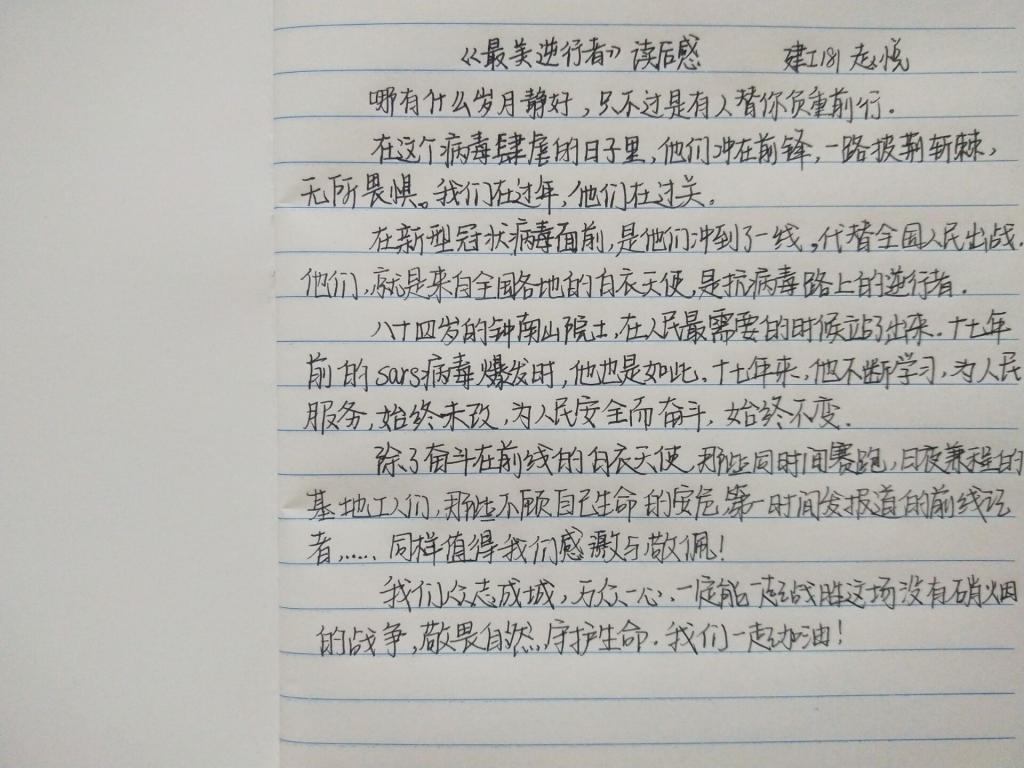 《最美逆行者》读后感 建工181 赵悦
哪有什么岁月静好，只不过是有人替你负重前行.
在这个病毒肆虐的日子里，他们冲在前锋，一路披荆斩棘，
无所畏惧。我们在过年，他们在过关.
在新型冠状病毒面前，是他们冲到了一线，代替全国人民出战.
他们，就是来自全国各地的白衣天使，是抗病毒路上的逆行者.
八十四岁的钟南山院士，在人民最需要的时候站了出来.十七年
前的sars病毒爆发时，他也是如此.十七年来，他不断学习，为人民
服务，始终未改，为人民安全而奋斗，始终不变.
除了奋斗在前线的白衣天使，那些同时间赛跑，日夜兼程的
基地工人们，那些不顾自己生命的安危，第一时间发报道的前线记
者，......同样值得我们感激与敬佩！
我们众志成城，万众一心，一定能一起战胜这场没有硝烟
的战争，敬畏自然，守护生命.我们一起加油！